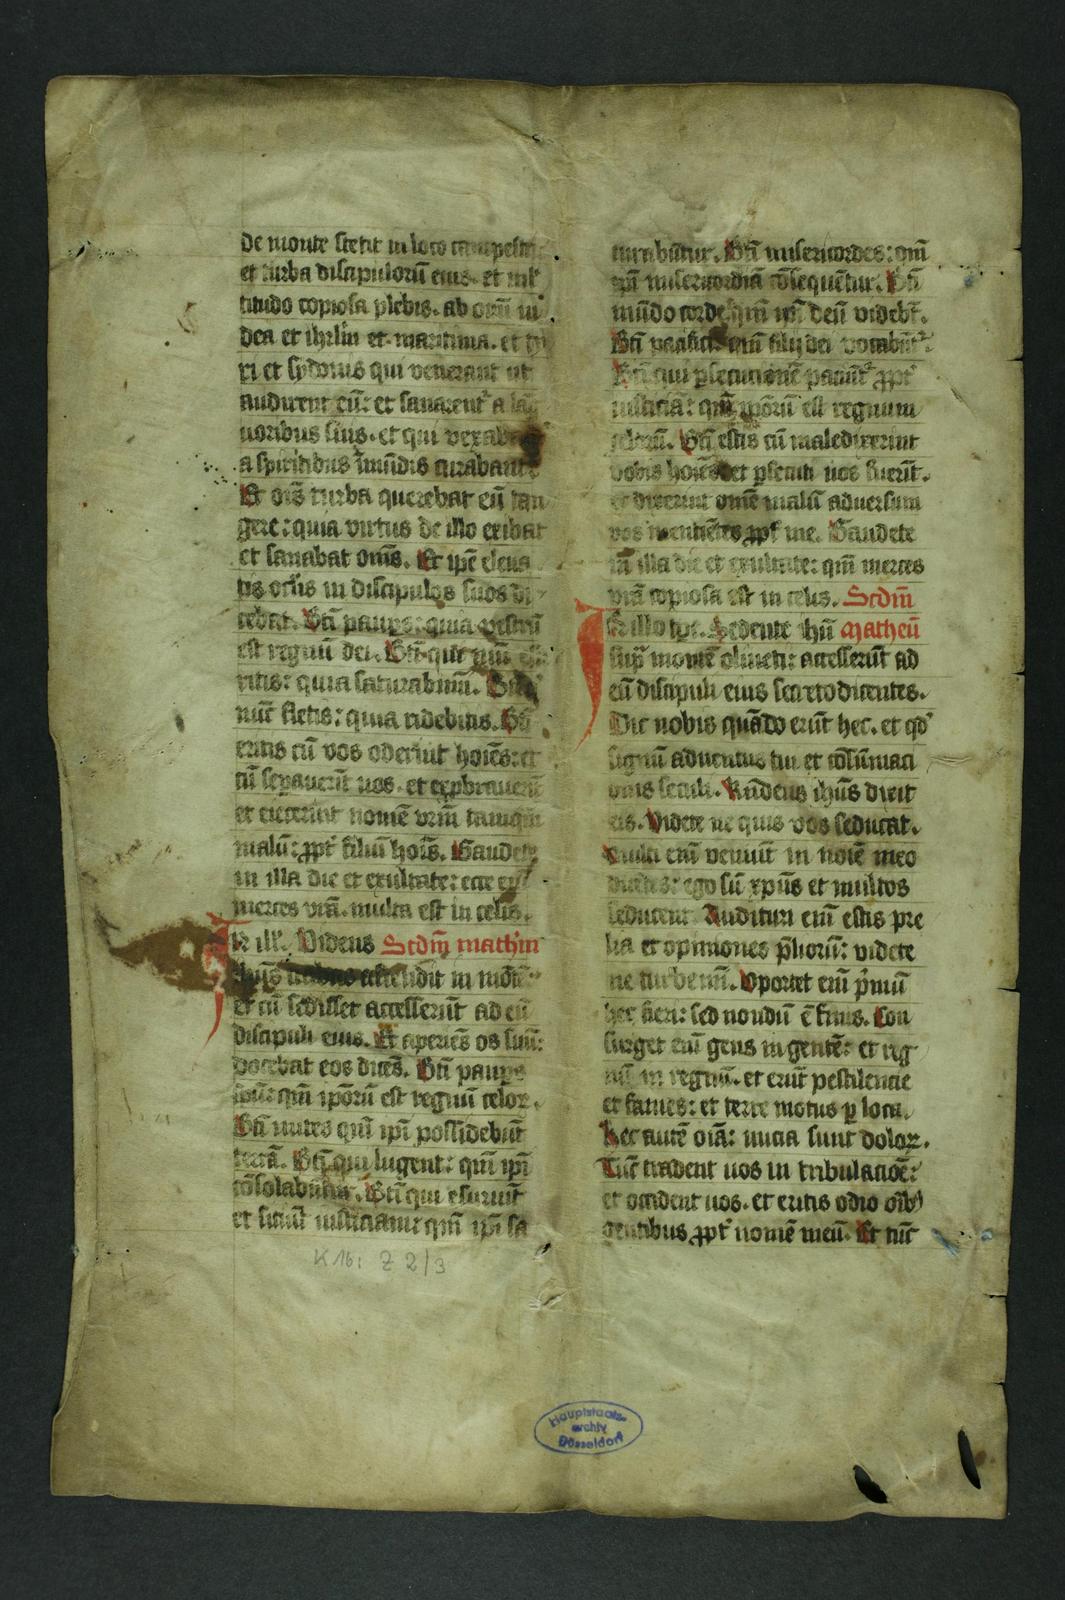 de monte stetit in loco campest
et turba discipuloru͂ eius. et ml
titudo copiosa plebis. ab om͂i iu
dea et ihrl͂m et maritima. et ty
ri et sydonis qui venerant ut
audirent eu͂: et sanarent᷑ a la͂
uoribus suis. et qui vexaba
a spiritibus i͂mu͂dis curabant᷑
Et om͂s turba querebat eu͂ tan
gere: quia virtus de illo exibat
et sanabat om͂s. Et ip͂e eleua
tis oc͂lis in discipulos suos di
cebat. Bt͂i paup͂es: quia vestru͂
est regnu͂ dei. Bt͂i qui
ritis: quia saturabim͂i.
nu͂c fletis: quia ridebitis. Bt͂i
eritis cu͂ vos oderi͂nt ho͂i͂es: et
cu͂ sepaueri͂t uos. et exp͂brauerint
et eiecerint nome͂ vr͂m tamq͂m
malu͂: ꝓpt᷑ filiu͂ ho͂is. Gaudete
in illa die et exultate: ecce
merces vr͂a. multa est in celis.
In ill᷑. Videns Scdm͂ math͂m
ih͂us turbas ascendit in mo͂te͂
et cu͂ sedisset accesseru͂t ad eu͂
discipuli eius. Et aperie͂s os suu͂:
docebat eos dice͂s. Bt͂i paup͂es
sp͂u: qm͂ ip͂oru͂ est regnu͂ celoꝝ.
Bt͂i mites qm͂ ip͂i possidebu͂t
terra͂. Bt͂i qui lugent: qm͂ ip͂i
co͂solabu͂tur. Bt͂i qui esuriu͂t
et sitiu͂t iusticiam: qm͂ ip͂i sa
turabu͂tur. Bt͂i misericordes: qm͂
ip͂i misericordia͂ co͂seque͂tur. Bt͂i
mu͂do corde: qm͂ ip͂i deu͂ videbt͂.
Bt͂i pacifici: qm͂ filij dei vocabu͂t᷑.
Bt͂i qui p͂secutione͂ paciu͂t᷑ ꝓpt᷑
iusticia͂: qm͂ ip͂oru͂ est regnum
celoru͂. Bt͂i estis cu͂ maledixerint
vobis ho͂i͂es et p͂secuti uos fueri͂t.
et dixerint om͂e malu͂ aduersum
vos mentie͂tes ꝓpt᷑ me. Gaudete
in illa die et exultate: qm͂ merces
vr͂a copiosa est in celis. Scdm͂
In illo tp͂r. Sedente ihu͂ Matheu͂
sup͂ monte͂ oliueti: accesseru͂t ad
eu͂ discipuli eius secreto dicentes.
Dic nobis qua͂do eru͂t hec. et qd᷑
signu͂ aduentus tui et co͂su͂maci
onis seculi. Rn͂dens ihu͂s dixit
eis. Videte ne quis vos seducat.
Multi em͂ venient in no͂i͂e meo
dice͂tes: ego su͂ xp͂us et multos
seducent. Audituri em͂ estis pre
lia et opiniones p͂lioru͂: videte
ne turbemi͂. Oportet em͂ p͂mu͂
hec fieri: sed nondu͂ e͂ finis. Con
surget em͂ gens in gente͂: et reg
nu͂ in regnu͂. et eru͂t pestilencie
et fames: et terre motus ꝑ loca.
Hec aute͂ o͂i͂a: inicia sunt doloꝝ.
Tu͂c tradent uos in tribulacio͂e͂:
et occident uos. et eritis odio o͂i͂bꝰ
gentibus ꝓpt᷑ nome͂ meu͂. Et tu͂c
K 16: Z 2/3
Hauptstaats-
archiv
Düsseldorf